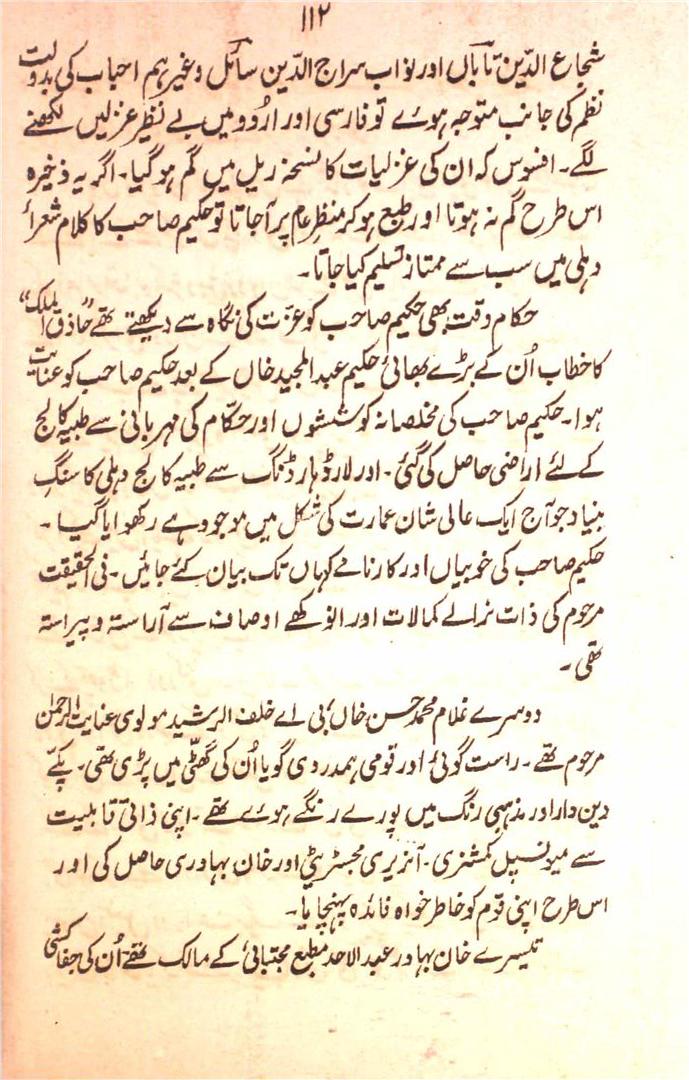 ۱۱۲
شجاع الدین تاباں اور نواب سراج الدین سائل وغیرہم احباب کی بدولت
نظم کی جانب متوجہ ہوئے تو فارسی اور اردو میں بے نظیر غزلیں لکھنے
لگے۔ افسوس کہ ان کی غزلیات کا نسخہ ریل میں گم ہو گیا۔ اگر یہ ذخیرہ
اس طرح گم نہ ہوتا اور طبع ہوکر منظر عام پر آجاتا تو حکیم صاحب کا کلام شعرائے
دہلی میں سب سے ممتاز تسلیم کیا جاتا۔
حکام وقت بھی حکیم صاحب کو عزت کی نگاہ سے دیکھتے تھے "حاذق الملک"
کا خطاب اُن کے بڑے بھائی حکیم عبدالمجید خاں کے بعد حکیم صاحب کو عنایت
ہوا۔ حکیم صاحب کی مخلصانہ کوششوں اور حکّام کی مہربانی سے طبیہ کالج
کے لئے اراضی حاصل کی گئی۔ اور لارڈ ہارڈنگ سے طبیہ کالج دہلی کا سنگِ
بنیاد جو آج ایک عالی شان عمارت کی شکل میں موجود ہے رکھوایا گیا۔
حکیم صاحب کی خوبیاں اور کارنامے کہاں تک بیان کئے جائیں۔ فی الحقیقت
مرحوم کی ذات نرالے کمالات اور انوکھے اوصاف سے آراستہ و پیراستہ
تھی۔
دوسرے غلام محمد حسن خاں بی اے خلف الرشید مولوی عنایت الرحمٰن
مرحوم تھے۔ راست گوئی اور قومی ہمدردی گویا اُن کی گھٹّی میں پڑی تھی۔ پکّے
دین دار اور مذہبی رنگ میں پورے رنگے ہوئے تھے۔ اپنی ذاتی قابلیت
سے میونسپل کمشنری۔ آنریری مجسٹریٹی اور خان بہادری حاصل کی اور
اس طرح اپنی قوم کو خاطر خواہ فائدہ پہنچایا۔
تیسرے خان بہادر عبدالاحد مطبع مجتبائی کے مالک تھے اُن کی جفاکشی